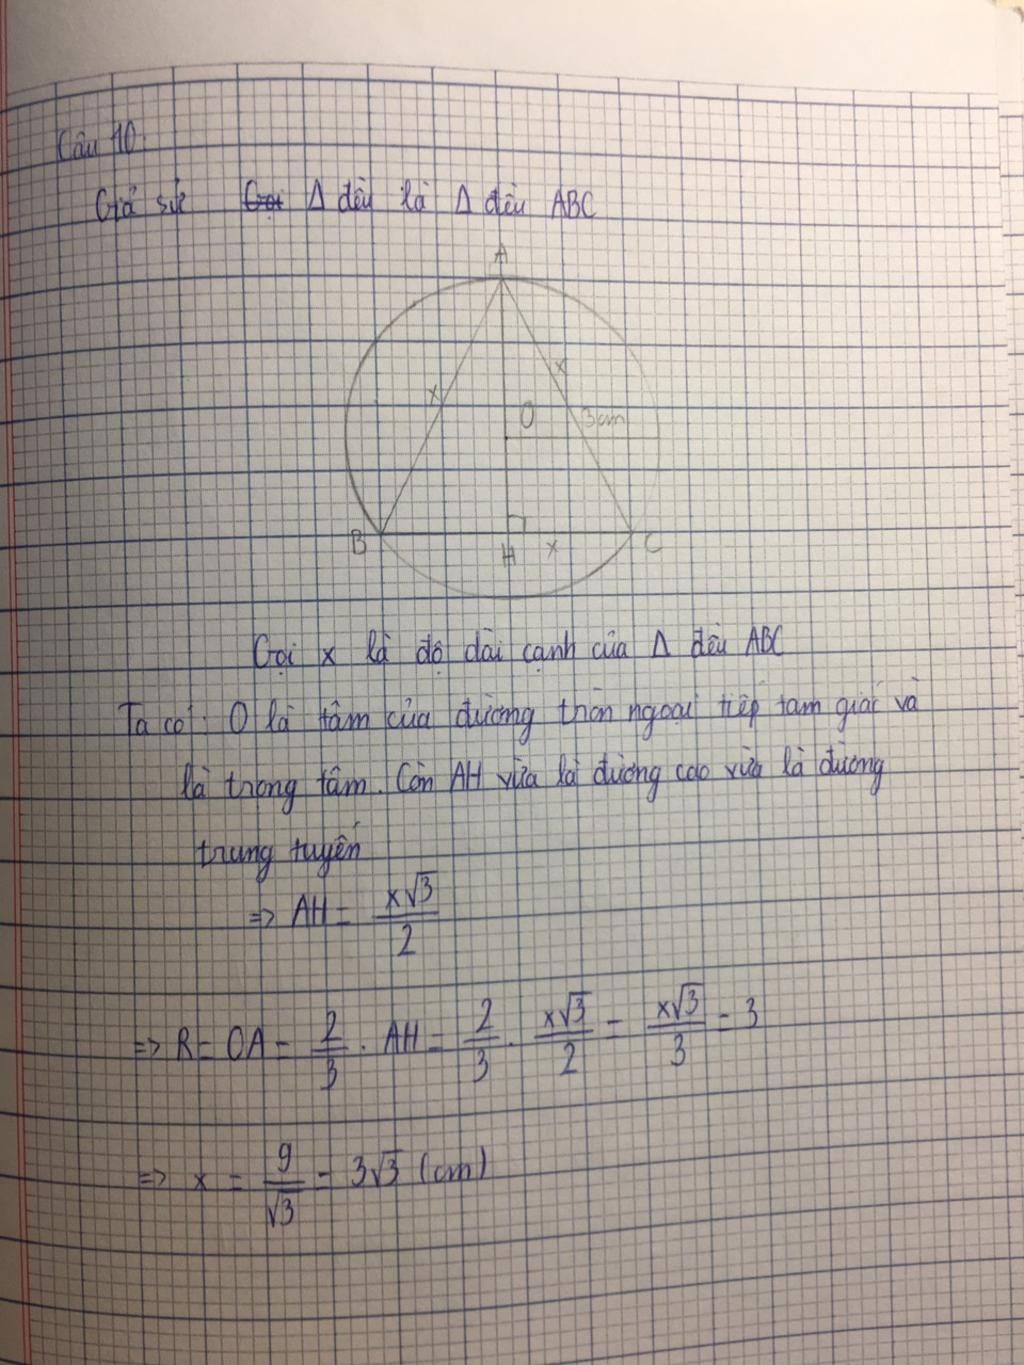 Câu 10:
Giả sử Gọi Δ đều là Δ đều ABC
A
x
x
O
3cm
B
H
x
C
Gọi x là độ dài cạnh của Δ đều ABC
Ta có: O là tâm của đường tròn ngoại tiếp tam giác và
là trọng tâm. Còn AH vừa là đường cao vừa là đường
trung tuyến
=> AH = x√3/2
=> R = OA = 2/3 . AH = 2/3 . x√3/2 = x√3/3 = 3
=> x = 9/√3 = 3√3 (cm)